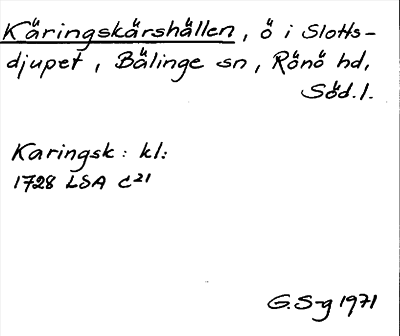 Käringskärshällen, ö i Slotts-
djupet, Bälinge sn, Rönö hd,
Söd.l.
Karingsk: kl:
1728 LSA C21
G.S-g 1971